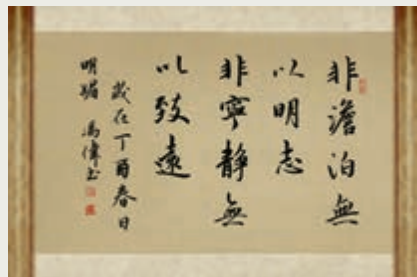 非澹泊無
以明志
非寧靜無
以致遠
歲在丁酉春日
明媚 偉書